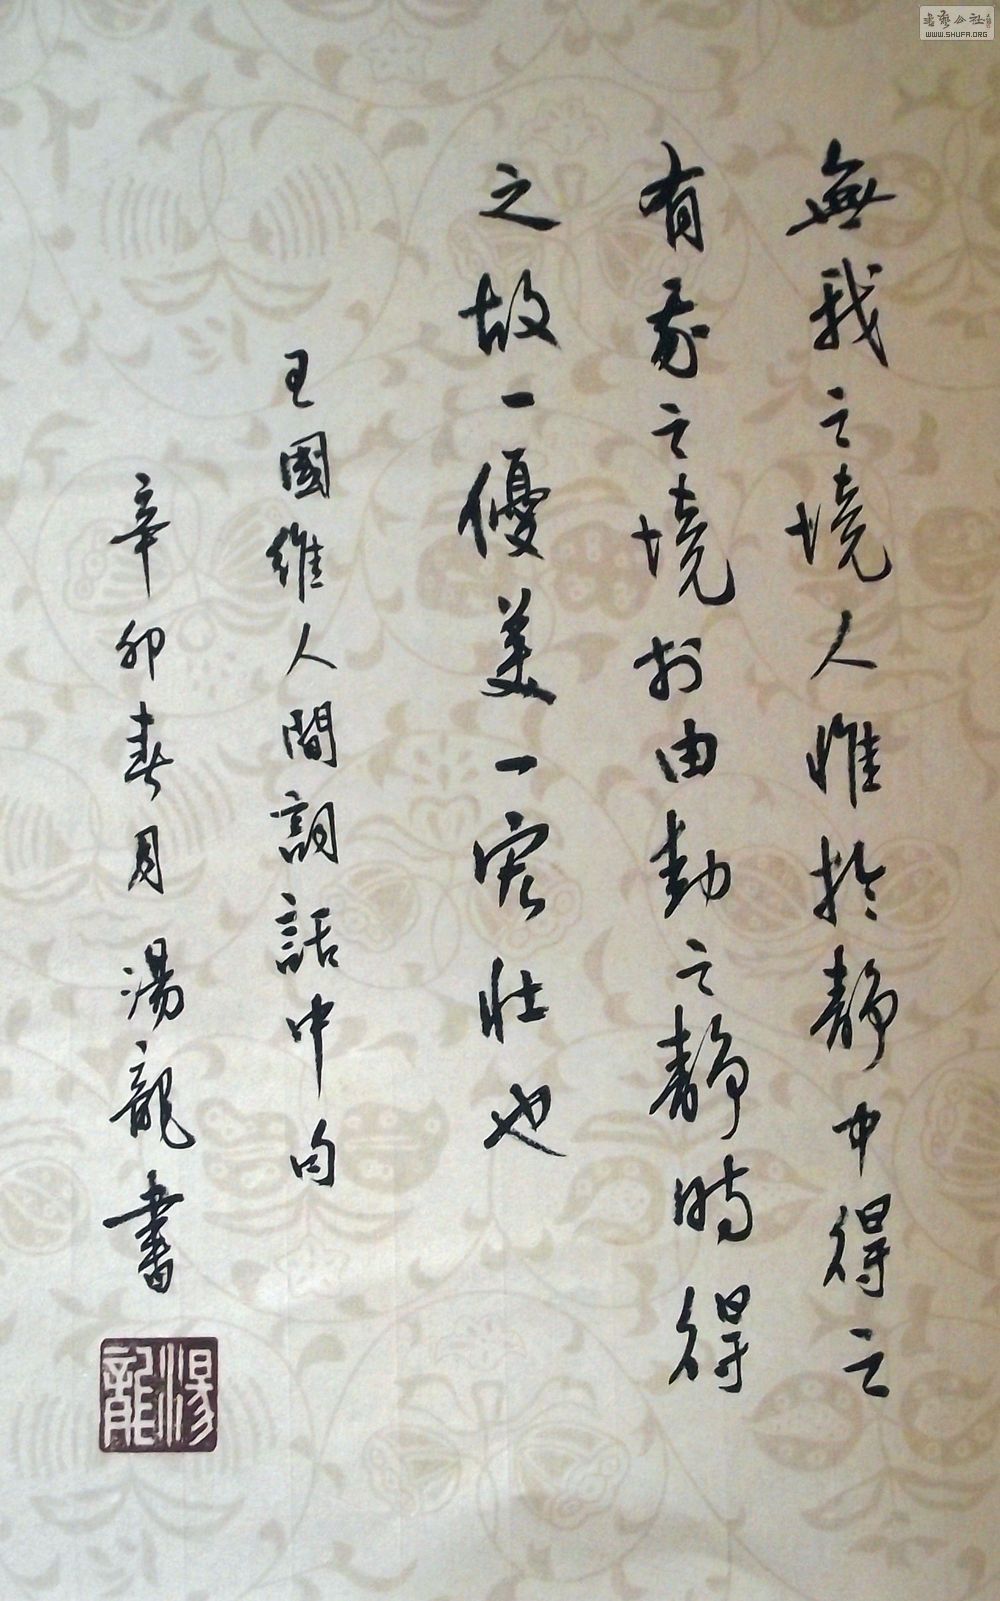 無我之境人惟於静中得之
有我之境於由動之静時得
之故一優美一宏壮也
王國維人間詞話中句
辛卯春月湯龍書
湯龍
書藝公社
WWW.SHUFA.ORG